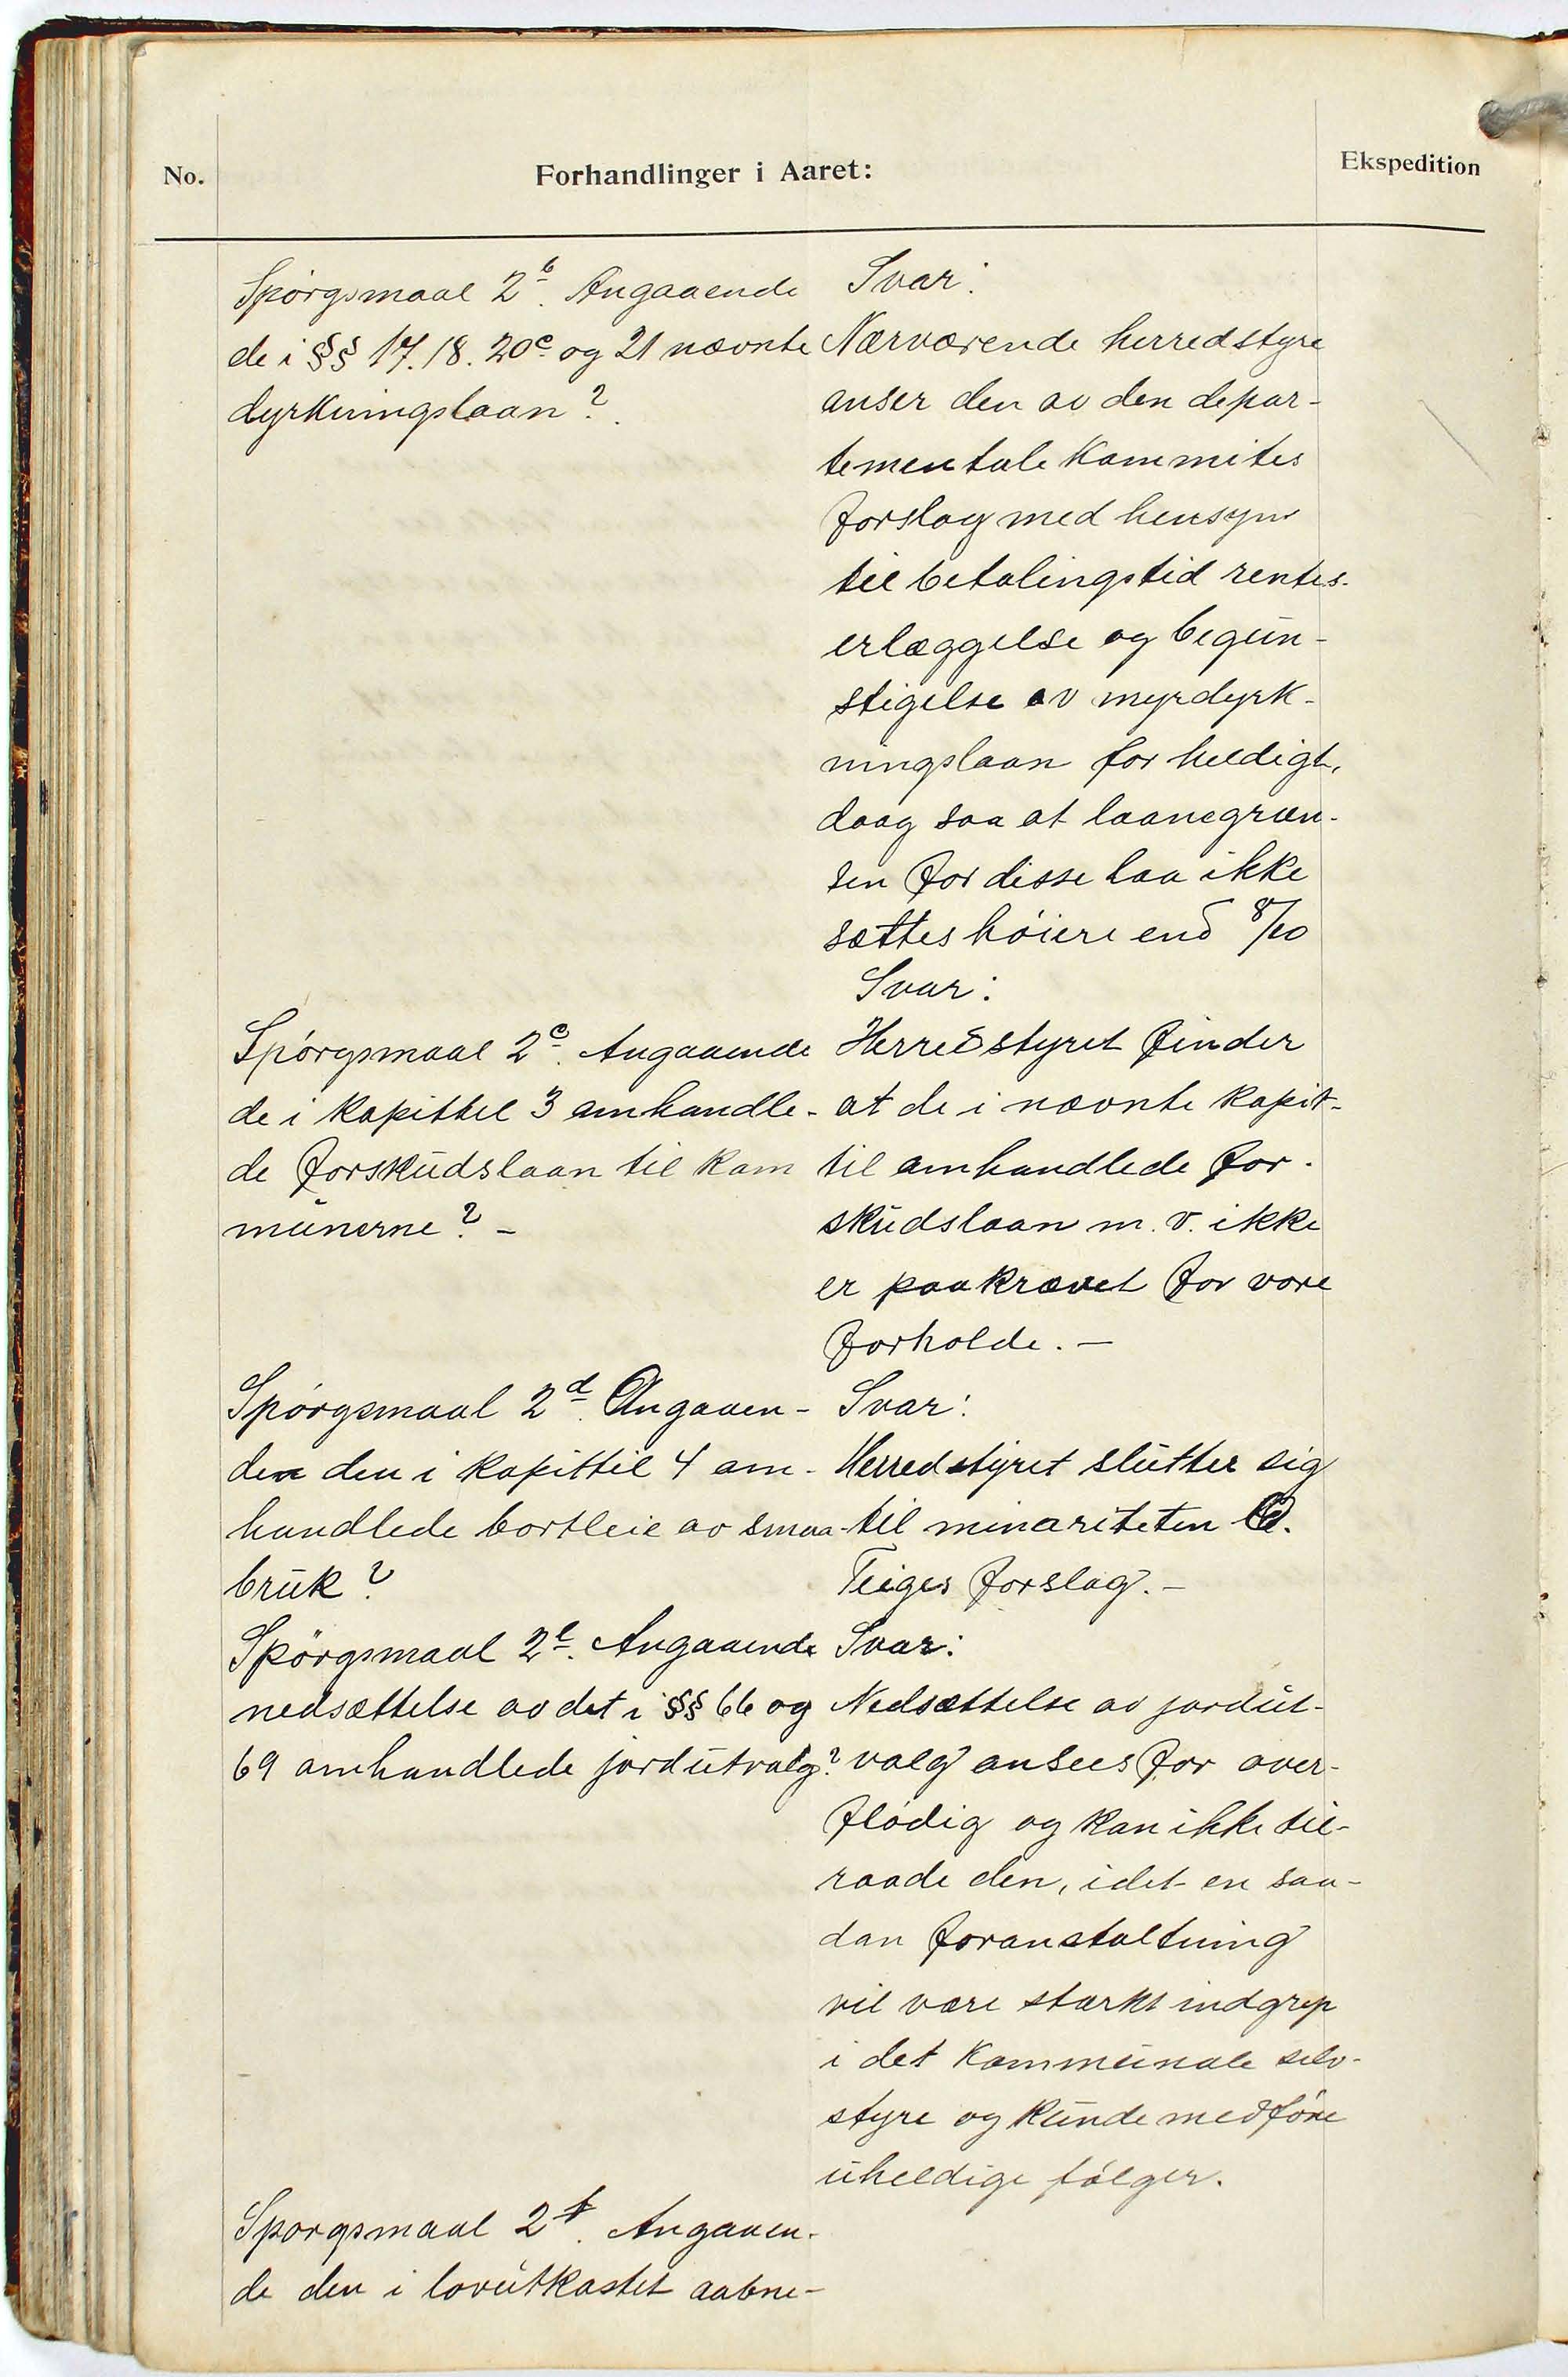 No.
Forhandlinger i Aaret:
Ekspedition
Spörgsmaal 2b. Angaaende
de i §§ 17. 18. 20c og 21 nævnte
dyrkningslaan?
Svar:
Nærværende herredstyre
anser den av den depar-
tementale kommites
forslag med hensyn
til betalingstid rentes-
erlæggelse og begun-
stigelse av myrdyrk-
ningslaan for heldigt,
doag saa at laanegræn-
sen for disse laa ikke
sættes höiere end 8/10
Spörgsmaal 2c. Angaaende
de i kapittel 3 omhandle-
de forskudslaan til kom
munerne? -
Svar:
Herredstyret finder
at de i nævnte kapit-
til omhandlede for-
skudslaan m. v. ikke
er paakrævet for vore
forholde. -
Spörgsmaal 2d. Angaaen-
den den i kapittil 4 om-
handlede bortleie av smaa-
bruk?
Svar:
Herredstyret slutter sig
til minoriteten
Teiges forslag. -
Spörgsmaal 2e. Angaaende
nedsættelse av det i §§ 66 og
69 omhandlede jordutvalg?
Svar:
Nedsættelse av jordut-
valg ansees for over-
flödig og kan ikke til-
raade den, idet en saa-
dan foranstaltning
vil være stærkt indgrep
i det kommunale selv-
styre og kunde medföre
uheldige fölger.
Sporgsmaal 2f. Angaaen-
de den i lovutkastet aabne-